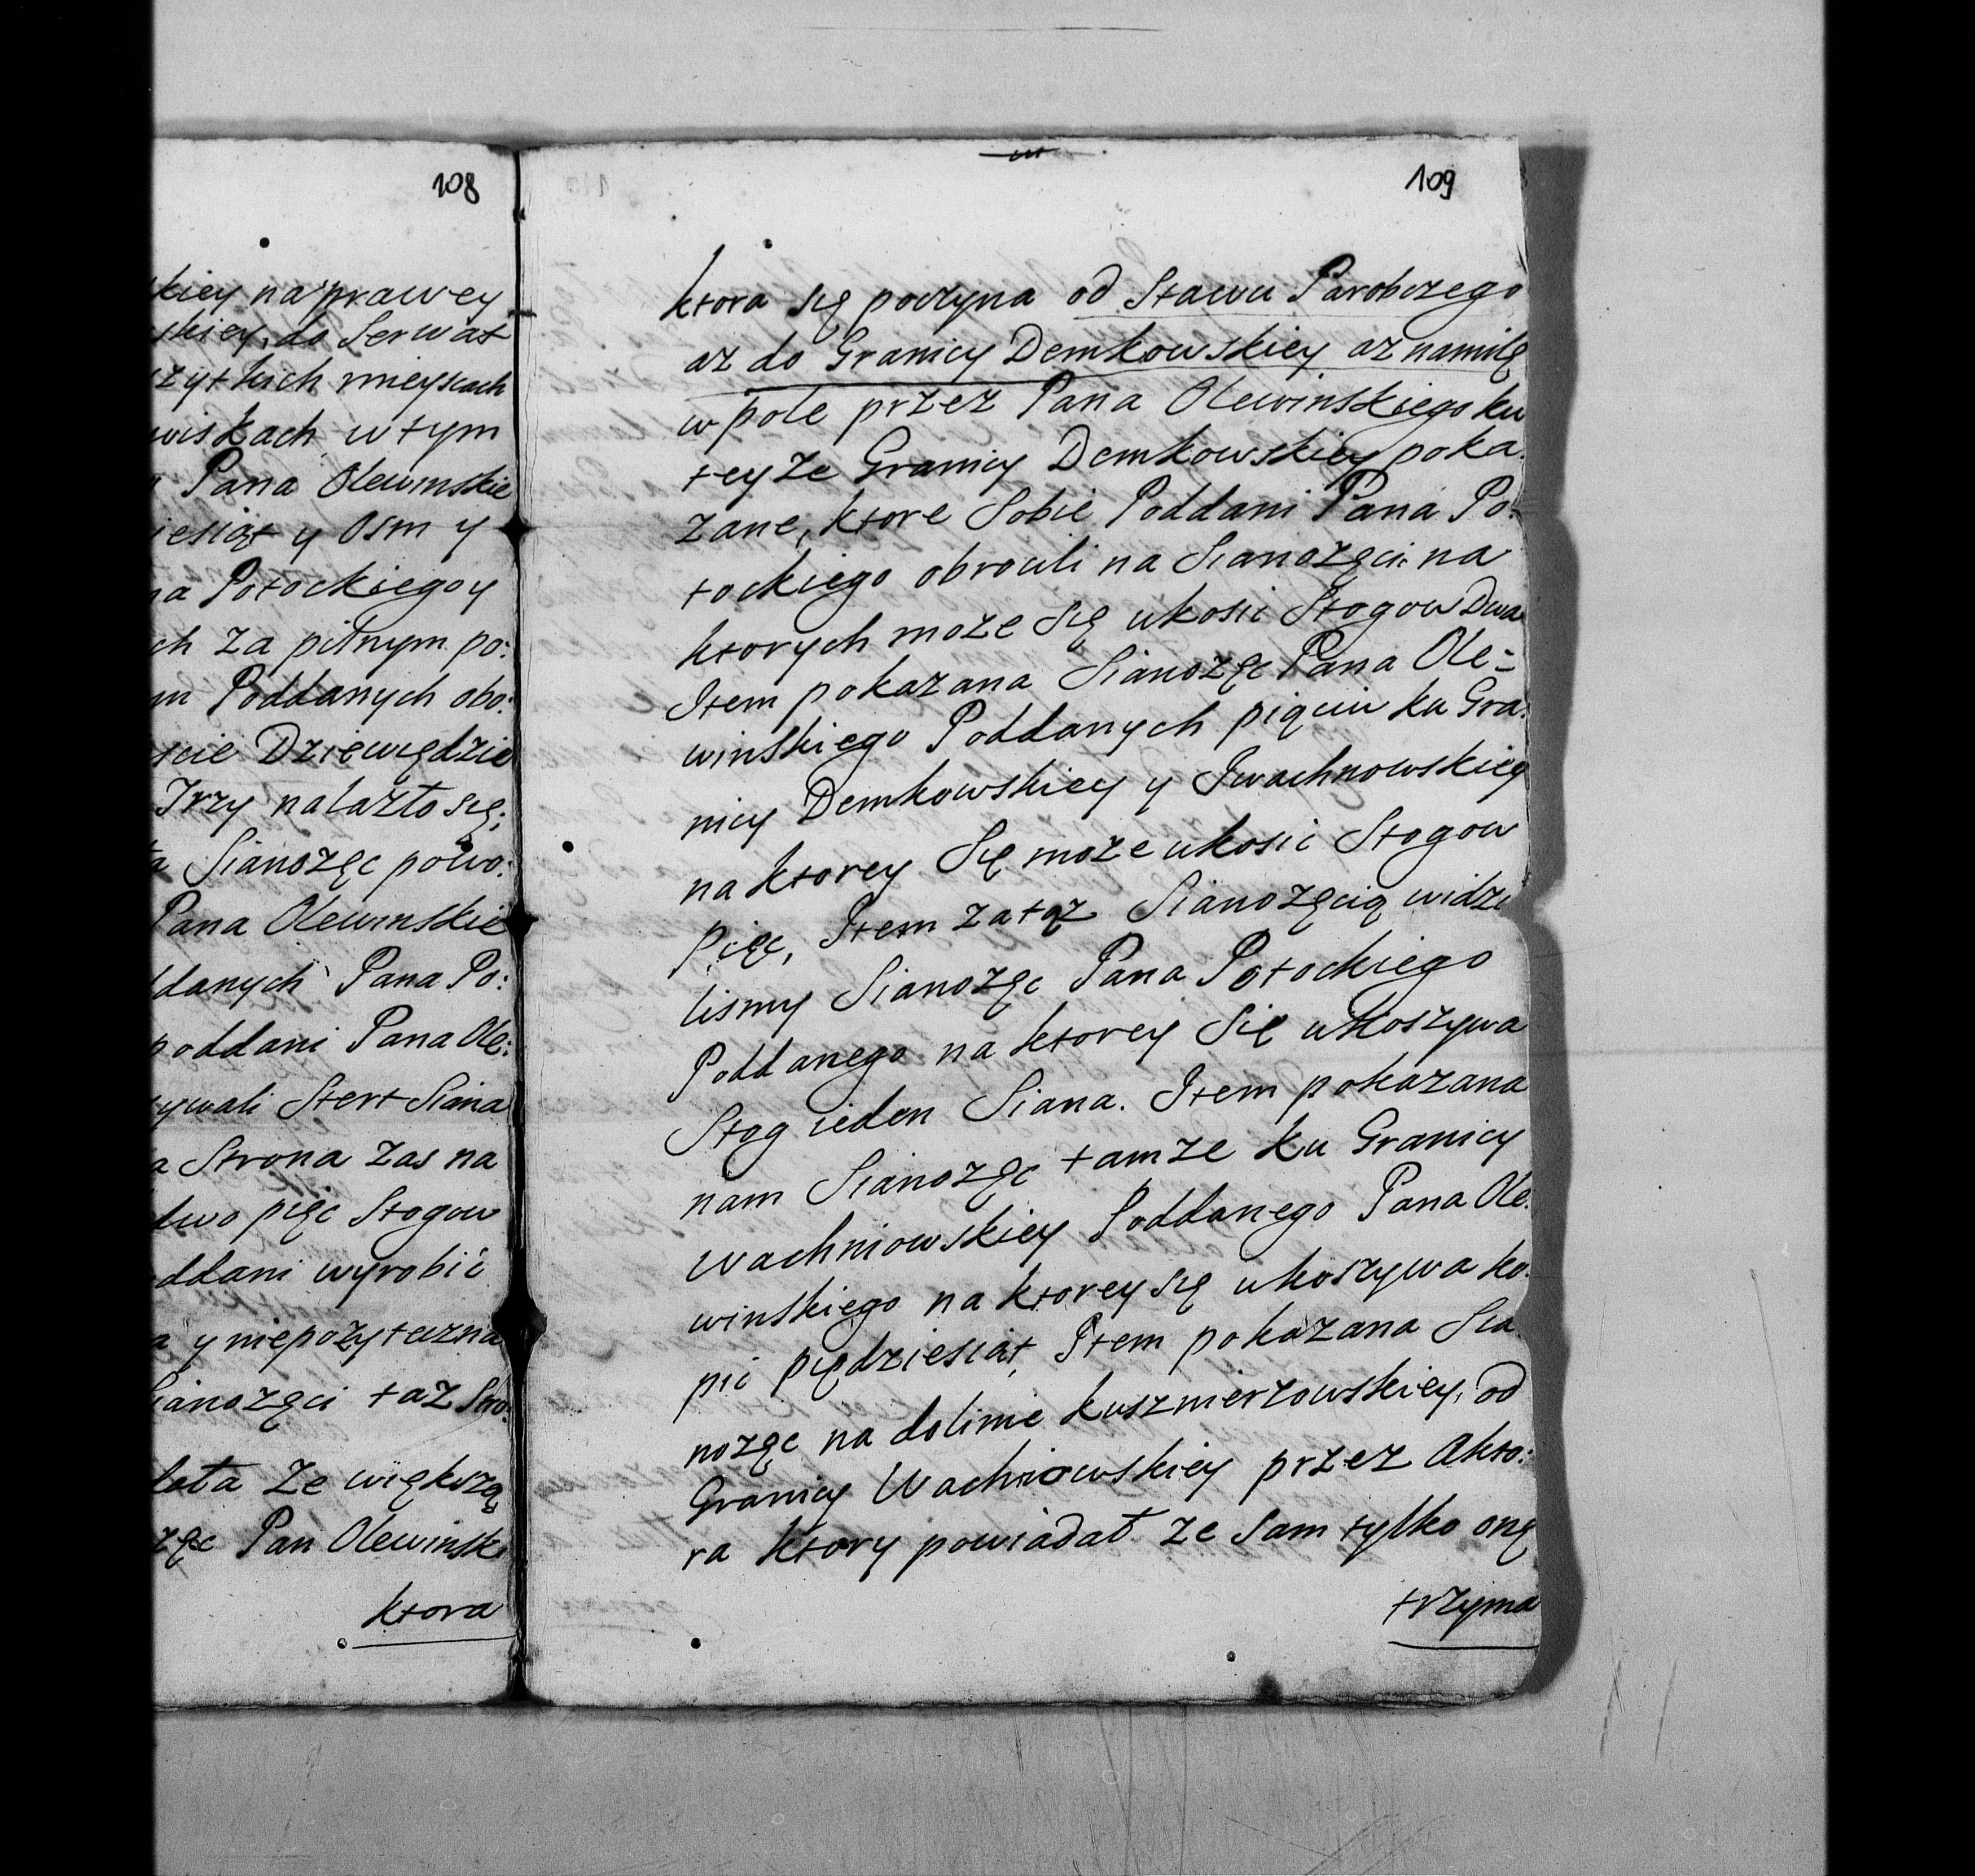 108
kiey naprawey
skiey, do Serwat
szytkich mieyscach
wiskach, w tym
Pana Olewinskie
iesiąt y osm y
na Potockiego y
ch za pilnym po:
m Poddanych obo:
scie Dziewiędzie
Trzy nalazło się;
ta Sianozęc powo:
Pana Olewinskie
ddanych Pana Po:
poddani Pana Ole:
ywali Stert Siana
a Strona zas na
dwo pięc Stogow
ddani wyrobić
a y niepozyteczna
Sianozęci taz Stro:
lata ze większą
zęc Pan Olewinski
ktora
109
ktora się poczyna od Stawu Parobczego
az do Granicy Demkowskiey az namilę
w pole przez Pana Olewinskiego ku
teyze Granicy Demkowskiey poka:
zane, ktore Sobie Poddani Pana Po:
tockiego obrocili na Sianozęci na
ktorych moze Się ukosic Stogow Dwa
Item pokazana Sianozęc Pana Ole:
winskiego Poddanych pięciu ku Gra:
nicy Demkowskiey y Iwachnowskiey
na ktorey Się moze ukosic Stogow
pięc, Item za tąz Sianozęcią widzi
lismy Sianozęc Pana Potockiego
Poddanego na ktorey Się ukoszywa
Stog ieden Siana. Item pokazana
nam Sianozęc tamze ku Granicy
Wachniowskiey Poddanego Pana Ole:
winskiego na ktorey się ukoszywa ko:
pic pędziesiąt, Item pokazana Sia:
nozęc na dolinie Kuszmierzowskiey, od
Granicy Wachniowskiey przez Akto:
ra ktory powiadał ze Sam tylko onę
trzyma